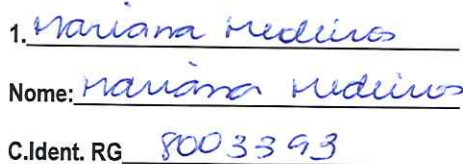 1. Mariana Medeiros
Nome: Mariana Medeiros
C.Ident. RG 8003393